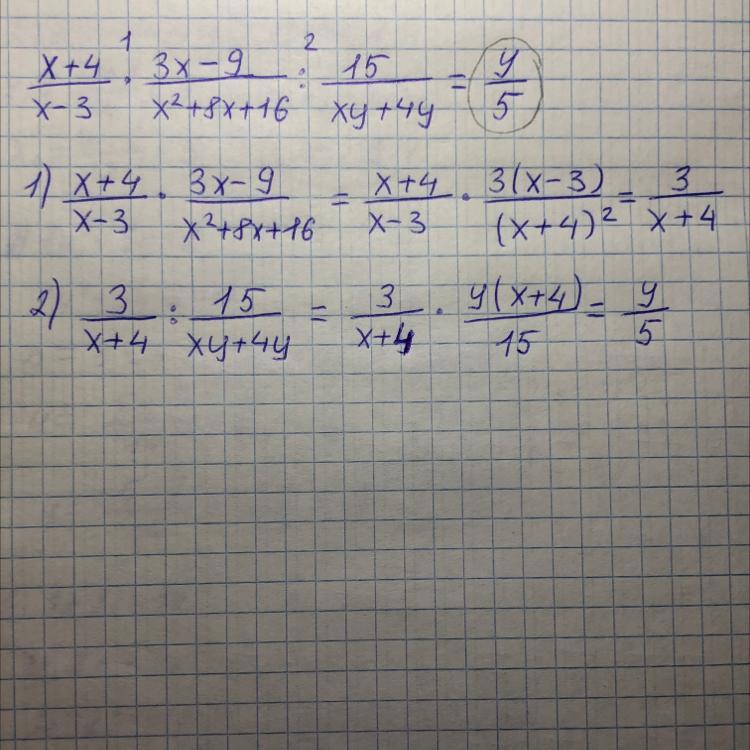 (x+4)/(x-3) ·¹ (3x-9)/(x²+8x+16) :² 15/(xy+4y) = y/5
1) (x+4)/(x-3) · (3x-9)/(x²+8x+16) = (x+4)/(x-3) · 3(x-3)/(x+4)² = 3/(x+4)
2) 3/(x+4) : 15/(xy+4y) = 3/(x+4) · y(x+4)/15 = y/5